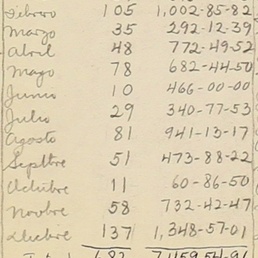 Febrero 105 1,002-85-82
Marzo 35 292-12-39
Abril 48 772-49-52
Mayo 78 682-44-50
Junio 10 466-00-00
Julio 29 340-77-53
Agosto 81 941-13-17
Septbre 51 473-88-22
Octubre 11 60-86-50
Novbre 58 732-42-47
Dicbre 137 1,348-57-01
Total